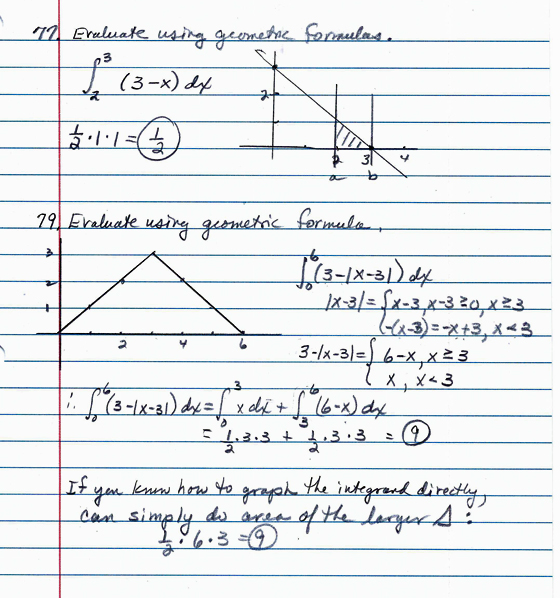 77. Evaluate using geometric formulas.
∫₂³ (3-x) dx
½·1·1 = ½
2
2 3 4
a b
79. Evaluate using geometric formula.
3
2
1
2 4 6
∫₀⁶ (3-|x-3|) dx
|x-3| = { x-3, x-3≥0, x≥3
-(x-3) = -x+3, x<3
3-|x-3| = { 6-x, x≥3
x, x<3
∴ ∫₀⁶ (3-|x-3|) dx = ∫₀³ x dx + ∫₃⁶ (6-x) dx
= ½·3·3 + ½·3·3 = 9
If you know how to graph the integrand directly,
can simply do area of the larger Δ:
½·6·3 = 9